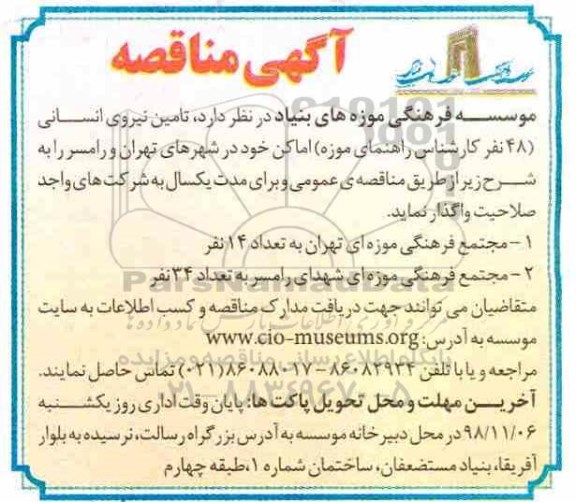 آگهی مناقصه
موسسه فرهنگی موزه های بنیاد در نظر دارد، تامین نیروی انسانی
(۴۸ نفر کارشناس راهنمای موزه) اماکن خود در شهرهای تهران و رامسر را به
شرح زیر از طریق مناقصه ی عمومی و برای مدت یکسال به شرکت های واجد
صلاحیت واگذار نماید.
۱- مجتمع فرهنگی موزه ای تهران به تعداد ۱۴ نفر
۲- مجتمع فرهنگی موزه ای شهدای رامسر به تعداد ۳۴ نفر
ParsNamadData
متقاضیان می توانند جهت دریافت مدارک مناقصه و کسب اطلاعات به سایت
موسسه به آدرس: www.cio-museums.org
پایگاه اطلاع رسانی مناقصه و مزایده
مراجعه و یا با تلفن ۸۶۰۸۲۹۳۴ - ۸۶۰۸۸۰۱۷ (۰۲۱) تماس حاصل نمایند.
۰۲۱-۸۸۳۴۹۶۷۰-۵
آخرین مهلت و محل تحویل پاکت ها: پایان وقت اداری روز یکشنبه
۹۸/۱۱/۰۶ در محل دبیرخانه موسسه به آدرس بزرگراه رسالت، نرسیده به بلوار
آفریقا، بنیاد مستضعفان، ساختمان شماره ۱، طبقه چهارم